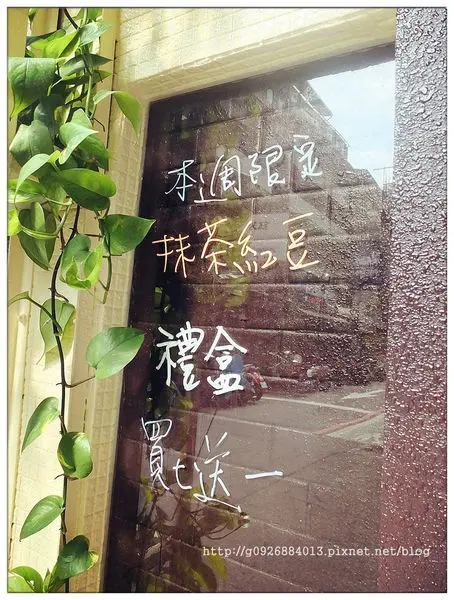 本週限定
抹茶紅豆
禮盒
買七送一
http://g0926884013.pixnet.net/blog